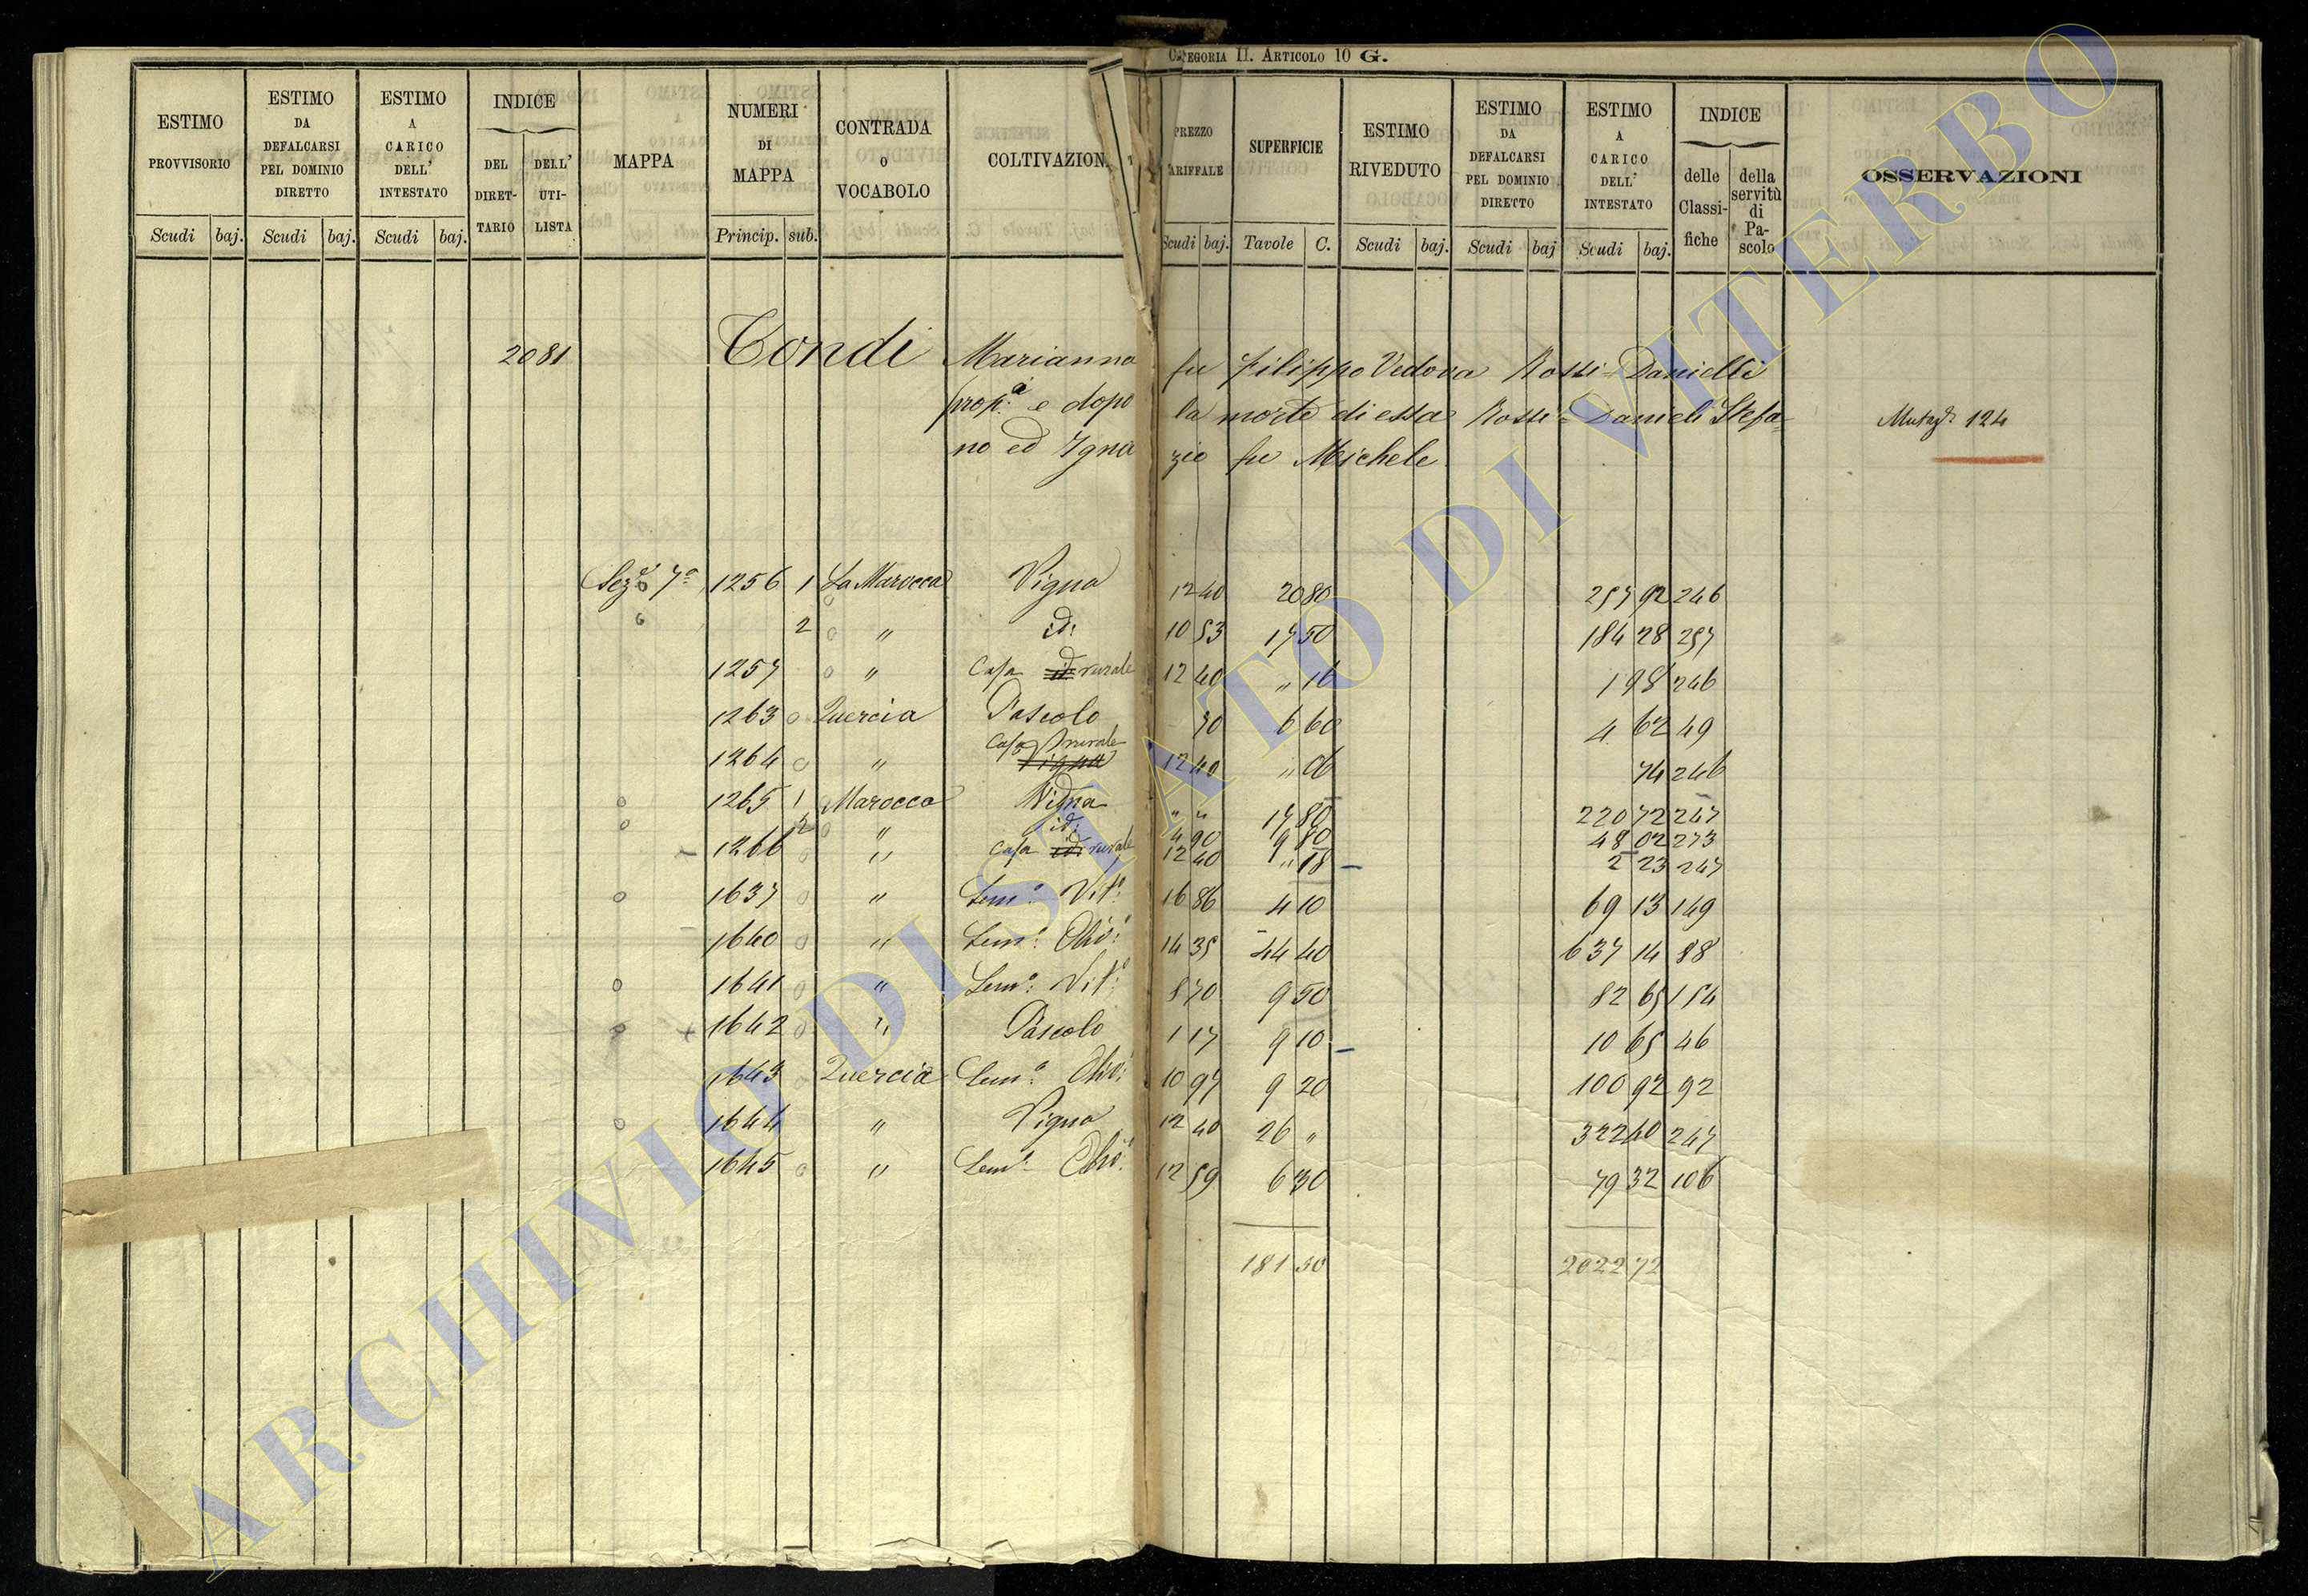 CATEGORIA II. ARTICOLO 10 G.
ESTIMO PROVVISORIO Scudi baj.
ESTIMO DA DEFALCARSI PEL DOMINIO DIRETTO Scudi baj.
ESTIMO A CARICO DELL' INTESTATO Scudi baj.
INDICE DEL DIRET- TARIO DELL' UTI- LISTA
MAPPA
NUMERI DI MAPPA Princip. sub.
CONTRADA O VOCABOLO
COLTIVAZION
PREZZO TARIFFALE Scudi baj.
SUPERFICIE Tavole C.
ESTIMO RIVEDUTO Scudi baj.
ESTIMO DA DEFALCARSI PEL DOMINIO DIRETTO Scudi baj
ESTIMO A CARICO DELL' INTESTATO Scudi baj.
INDICE delle Classi- fiche della servitù di Pa- scolo
OSSERVAZIONI
2081 Condi Marianna fu Filippo Vedova Rossi=Danielli
prop:a e dopo la morte di essa Rossi=Danieli Stefa=
no ed Ignazio fu Michele
Mutaz: 124
Sez:e 7a 1256 1 La Marocca Vigna 12 40 20 80 257 92 246
2 " id: 10 53 17 50 184 28 257
1257 " Casa id: rurale 12 40 " 16 1 98 246
1263 Quercia Pascolo 70 6 60 4 62 49
1264 " Casa rurale Vigna 12 40 " 06 74 246
1265 1 Marocca Vigna " " 17 80 220 72 247
2 " id: 4 90 9 80 48 02 273
1266 " Casa id: rurale 12 40 " 18 2 23 247
1637 " Sem:o Vit:o 16 86 4 10 69 13 149
1640 " Sem:o Oliv:o 14 35 44 40 637 14 88
1641 " Sem:o Vit:o 8 70 9 50 82 65 154
1642 " Pascolo 1 17 9 10 10 65 46
1643 Quercia Sem:o Oliv: 10 97 9 20 100 92 92
1644 " Vigna 12 40 26 " 322 40 247
1645 " Sem:o Oliv:o 12 59 6 30 79 32 106
181 50 2022 72
ARCHIVIO DI STATO DI VITERBO